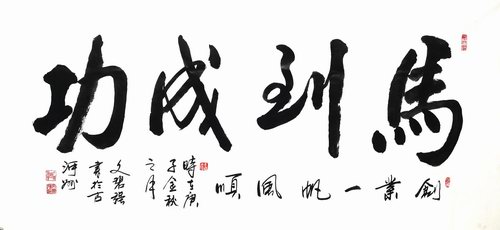 馬到成功
創業一帆風順
時在庚
子金秋
之月
文碧謹
書於百